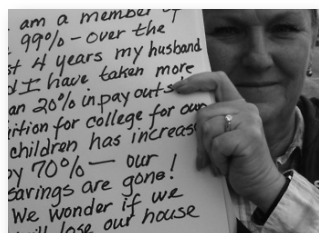 am a member of
99% - over the
4 years my husband
I have taken more
20% in pay out -
for college for our
children has increas
by 70% — our
savings are gone!
We wonder if we
lose our house